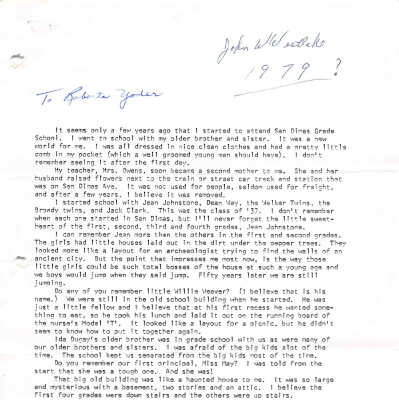 John W Westlake
1979 ?
To Roberta Yoder
It seems only a few years ago that I started to attend San Dimas Grade
School. I went to school with my older brother and sister. It was a new
world for me. I was all dressed in nice clean clothes and had a pretty little
comb in my pocket (which a well groomed young man should have). I don't
remember seeing it after the first day.
My teacher, Mrs. Owens, soon became a second mother to me. She and her
husband raised flowers next to the train or street car track and station that
was on San Dimas Ave. It was not used for people, seldom used for freight,
and after a few years, I believe it was removed.
I started school with Jean Johnstone, Dean Way, the Walker Twins, the
Brandy twins, and Jack Clark. This was the class of '37. I don't remember
when each one started in San Dimas, but I'll never forget the little sweet-
heart of the first, second, third and fourth grades, Jean Johnstone.
I can remember Jean more than the others in the first and second grades.
The girls had little houses laid out in the dirt under the pepper trees. They
looked more like a layout for an archaeologist trying to find the walls of an
ancient city. But the point that impresses me most now, is the way those
little girls could be such total bosses of the house at such a young age and
we boys would jump when they said jump. Fifty years later we are still
jumping.
Do any of you remember little Willie Weaver? (I believe that is his
name.) We were still in the old school building when he started. He was
just a little fellow and I believe that at his first recess he wanted some-
thing to eat, so he took his lunch and laid it out on the running board of
the nurse's Model 'T'. It looked like a layout for a picnic, but he didn't
seem to know how to put it together again.
Ida older brother was in grade school with us as were many of
our older brothers and sisters. I was afraid of the big kids alot of the
time. The school kept us seperated from the big kids most of the time.
Do you remember our first principal, Miss May? I was told from the
start that she was a tough one. And she was!
That big old building was like a haunted house to me. It was so large
and mysterious with a basement, two stories and an attic. I believe the
first four grades were down stairs and the others were up stairs.